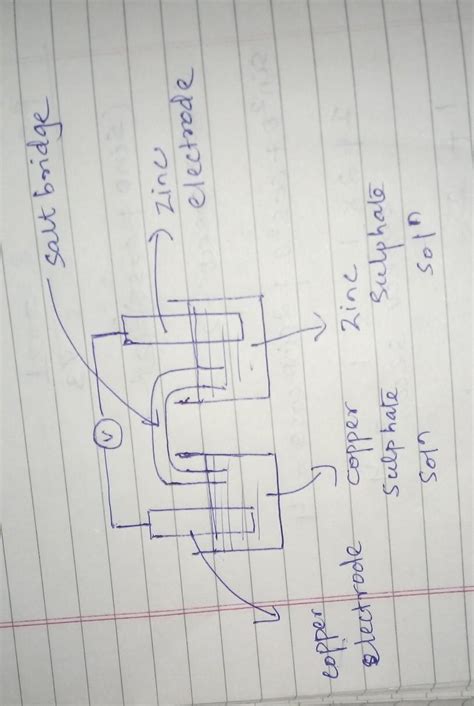 Salt bridge
V
Zinc
electrode
copper
electrode
copper
Sulphate
Soln
Zinc
Sulphate
Soln